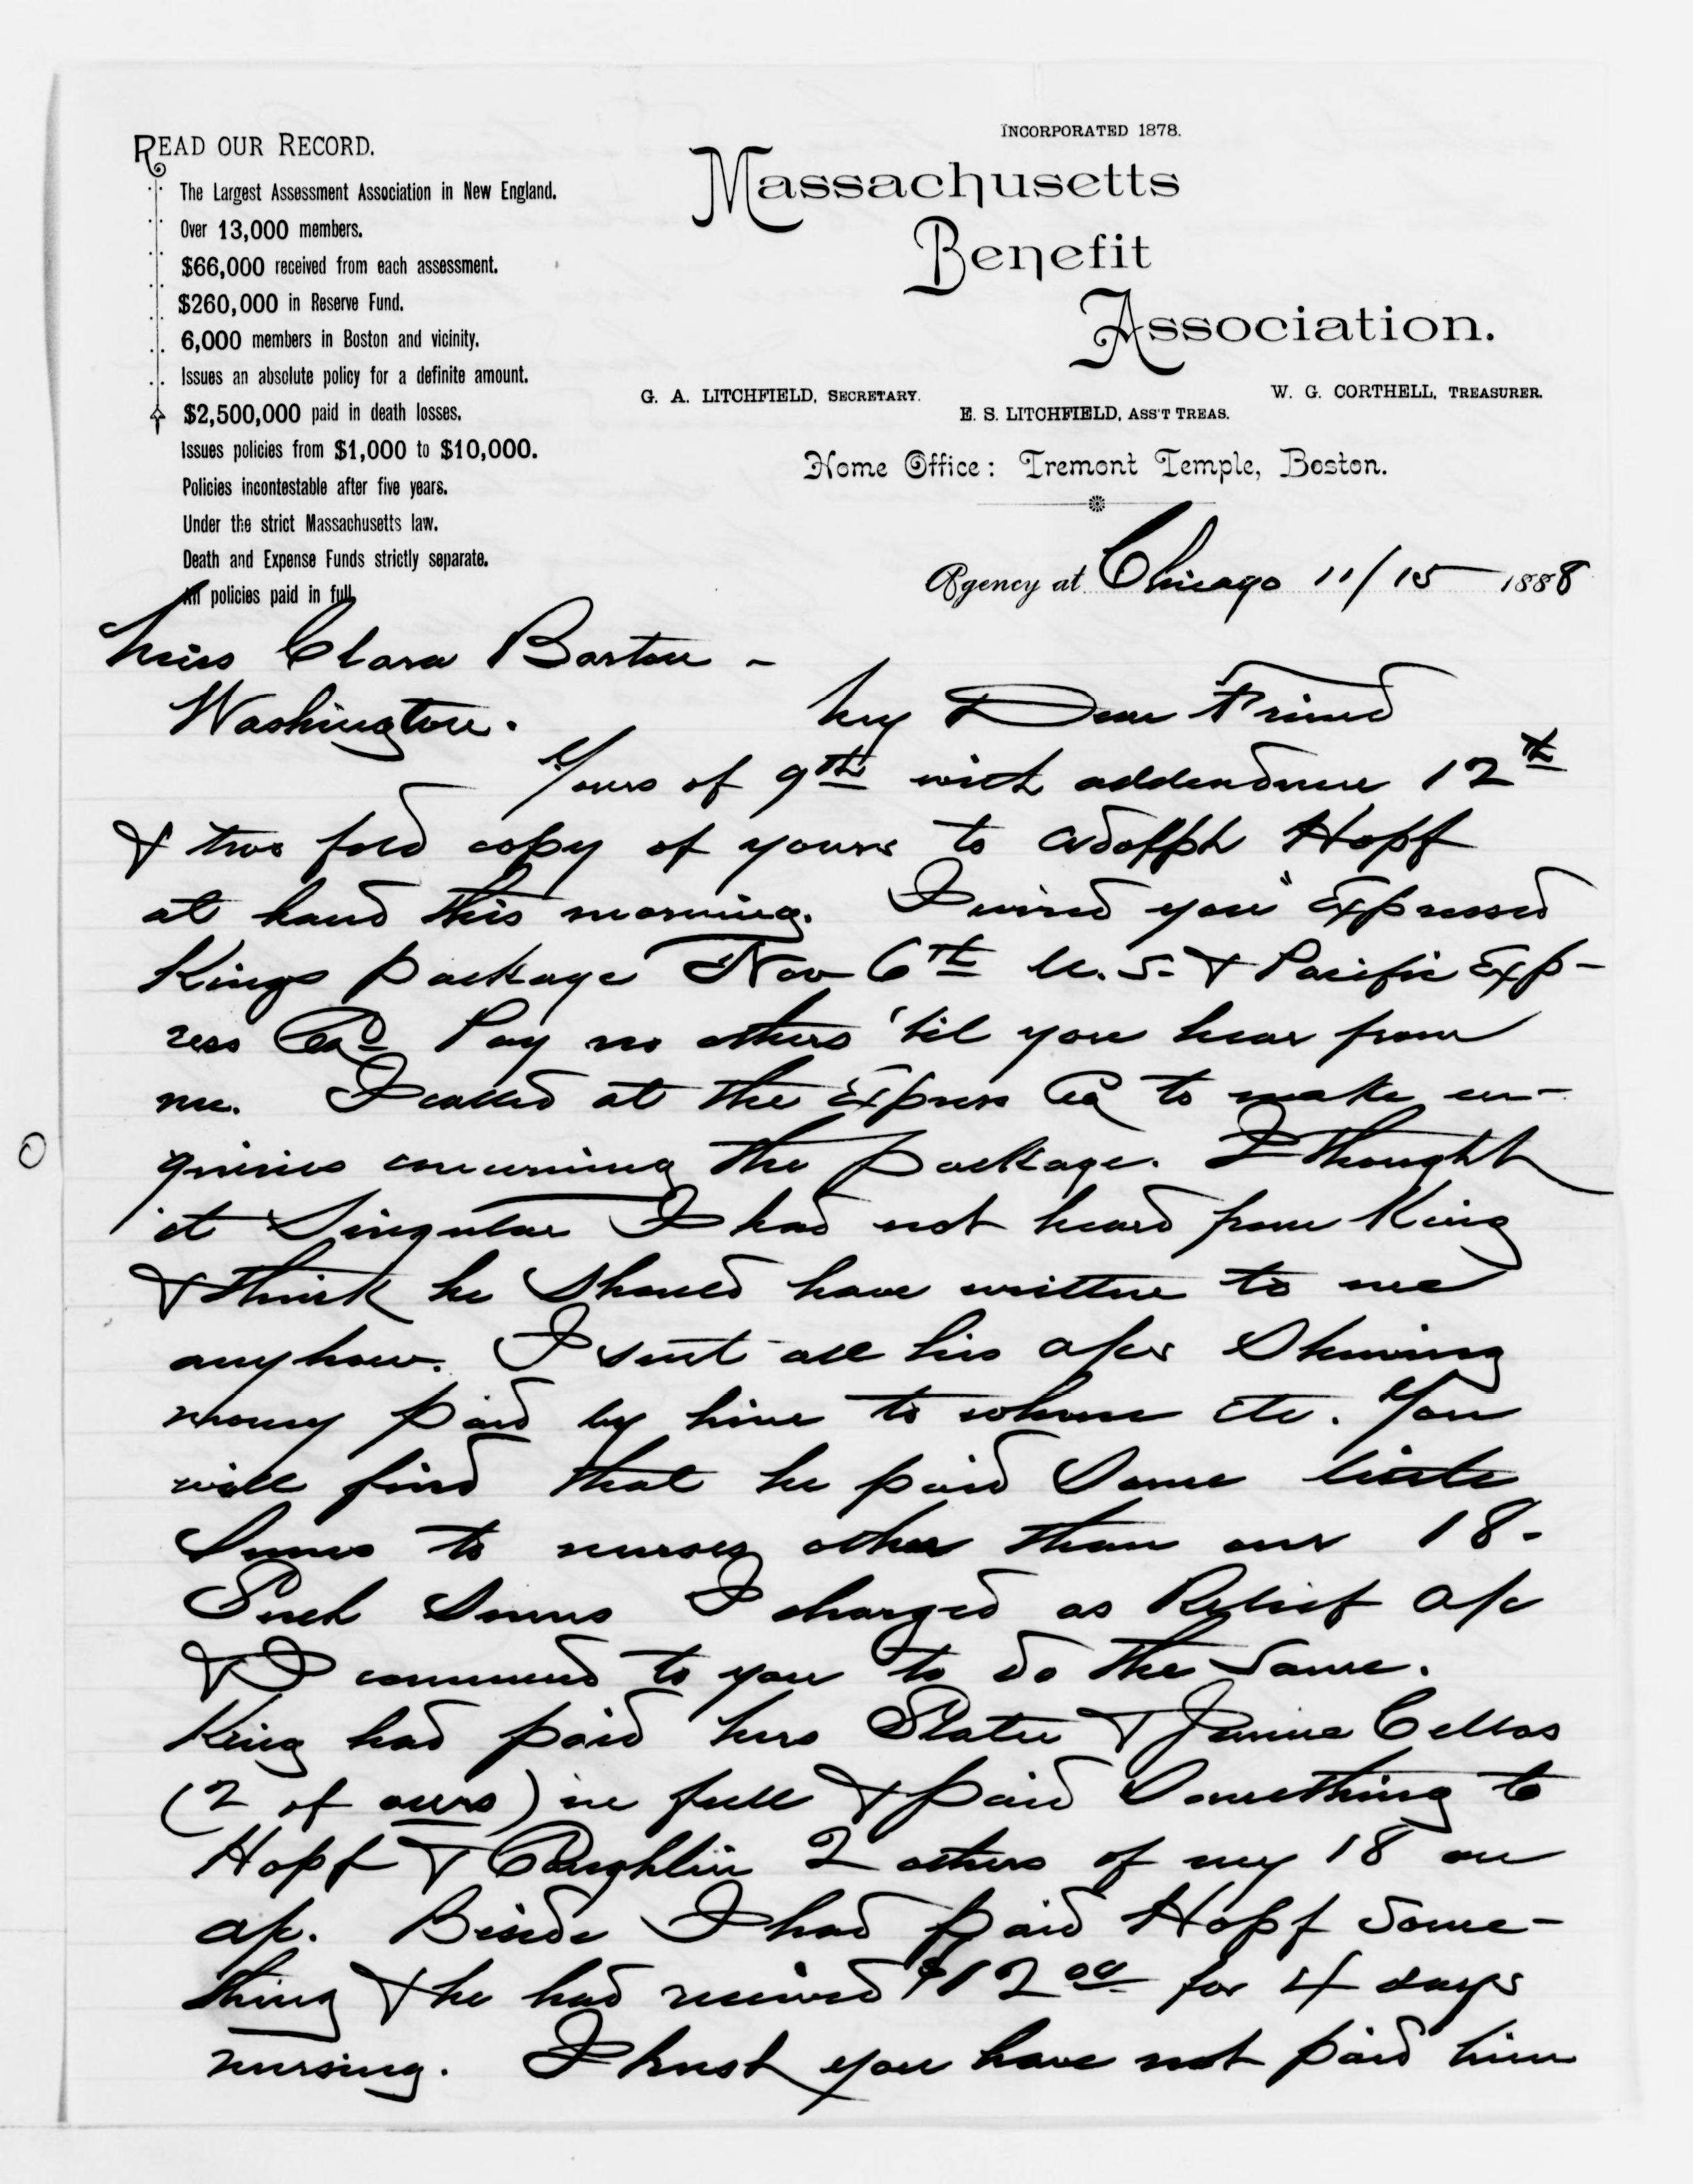 READ OUR RECORD.
The Largest Assessment Association in New England.
Over 13,000 members.
$66,000 received from each assessment.
$260,000 in Reserve Fund.
6,000 members in Boston and vicinity.
Issues an absolute policy for a definite amount.
$2,500,000 paid in death losses.
Issues policies from $1,000 to $10,000.
Policies incontestable after five years.
Under the strict Massachusetts law.
Death and Expense Funds strictly separate.
All policies paid in full.
INCORPORATED 1878.
Massachusetts
Benefit
Association.
G. A. LITCHFIELD, SECRETARY.
W. G. CORTHELL, TREASURER.
E. S. LITCHFIELD, ASS'T TREAS.
Home Office: Tremont Temple, Boston.
Agency at Chicago 11/15 1888
Miss Clara Barton -
Washington. My Dear Friend
Yours of 9th with addendum 12th
& two fold copy of yours to Adolph Hopf
at hand this morning. I wired you "Expressed
Kings package Nov 6th U.S. & Pacific Exp-
ress Co. Pay no others 'til you hear from
me. I called at the Express Co to make en-
quiries concerning the package. I thought
it Singular I had not heard from King
& think he Should have written to me
anyhow. I sent all his a/cs Showing
money paid by him to whom etc. You
will find that he paid Some little
Sums to nurses other than our 18-
Such Sums I charged as Relief a/c
& I commend to you to do the Same.
King had paid Mrs Slater & Jennie Cellos
(2 of ours) in full & paid Something to
Hopf & Coughlin 2 others of my 18 on
a/c. Beside I had paid Hopf Some-
thing & he had received $12 00 for 4 days
nursing. I trust you have not paid him